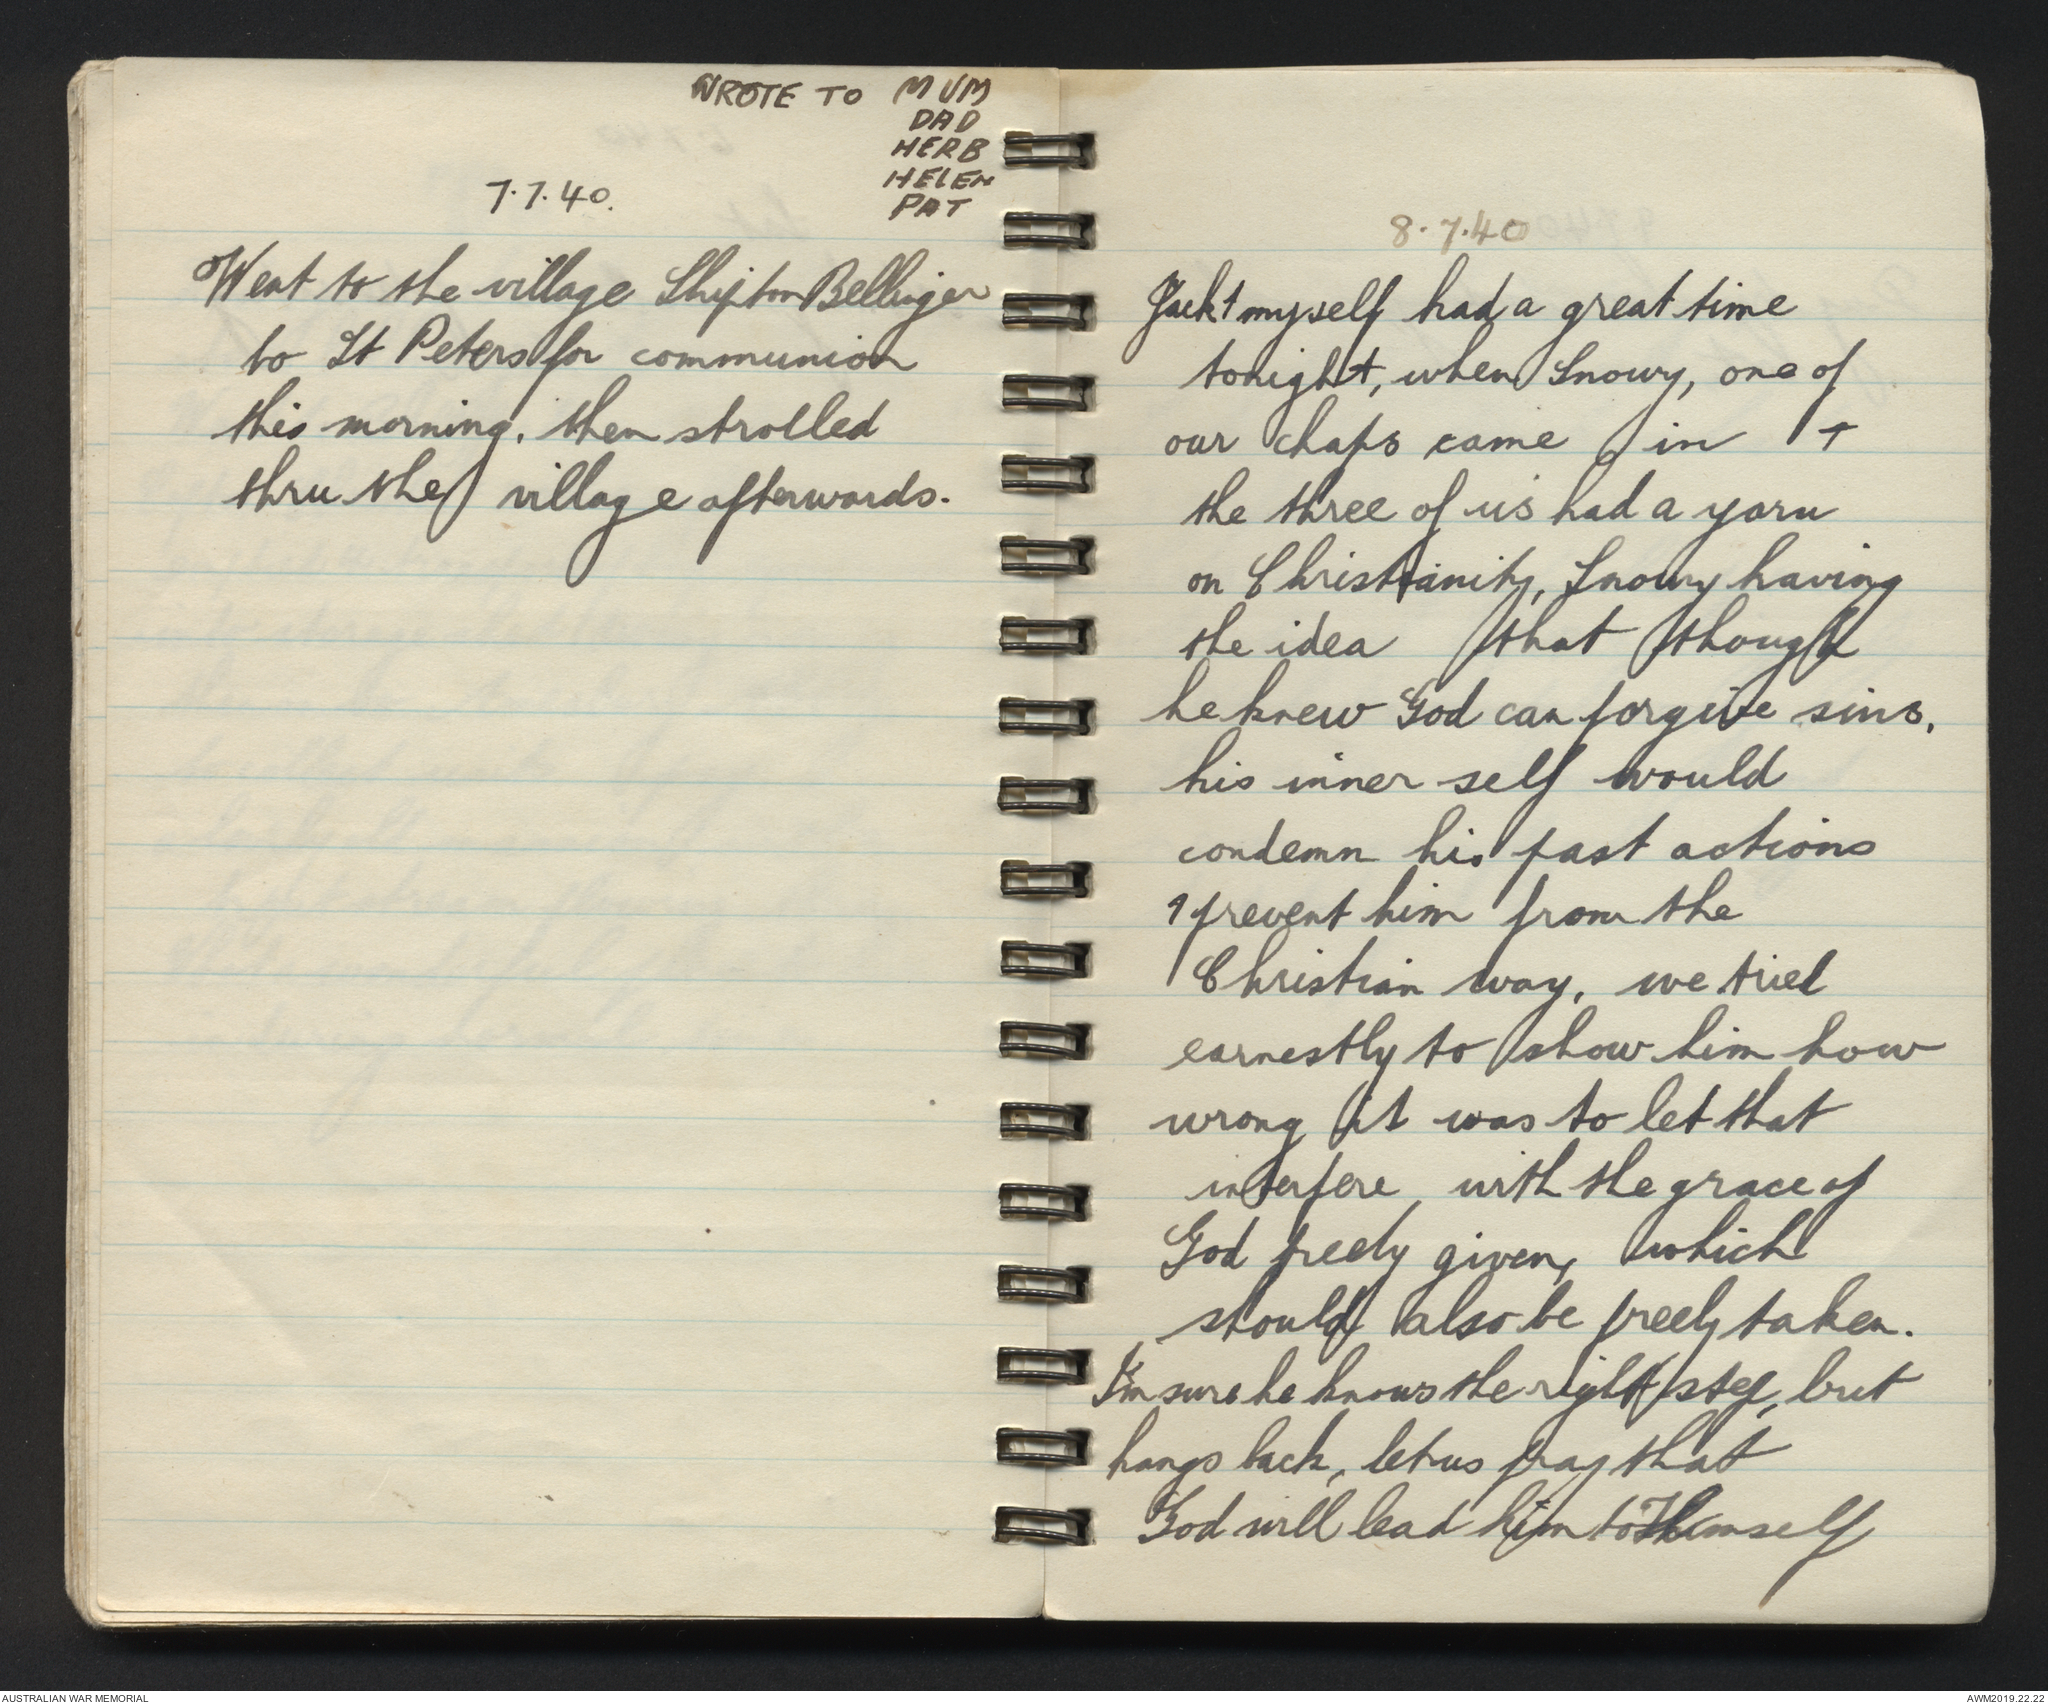 WROTE TO MUM
DAD
HERB
HELEN
PAT
7.7.40.
Went to the village Shipton Bellinger
to St Peters for communion
this morning, then strolled
thru the village afterwards.
8.7.40
Jack & myself had a great time
tonight, when Snowy, one of
our chaps came in +
the three of us had a yarn
on Christianity, Snowy having
the idea that though
he knew God can forgive sins,
his inner self would
condemn his past actions
& prevent him from the
Christian way, we tried
earnestly to show him how
wrong it was to let that
interfere with the grace of
God freely given, which
should also be freely taken.
I'm sure he knows the right step, but
hangs back, let us pray that
God will lead him to Himself
AUSTRALIAN WAR MEMORIAL
AWM2019.22.22